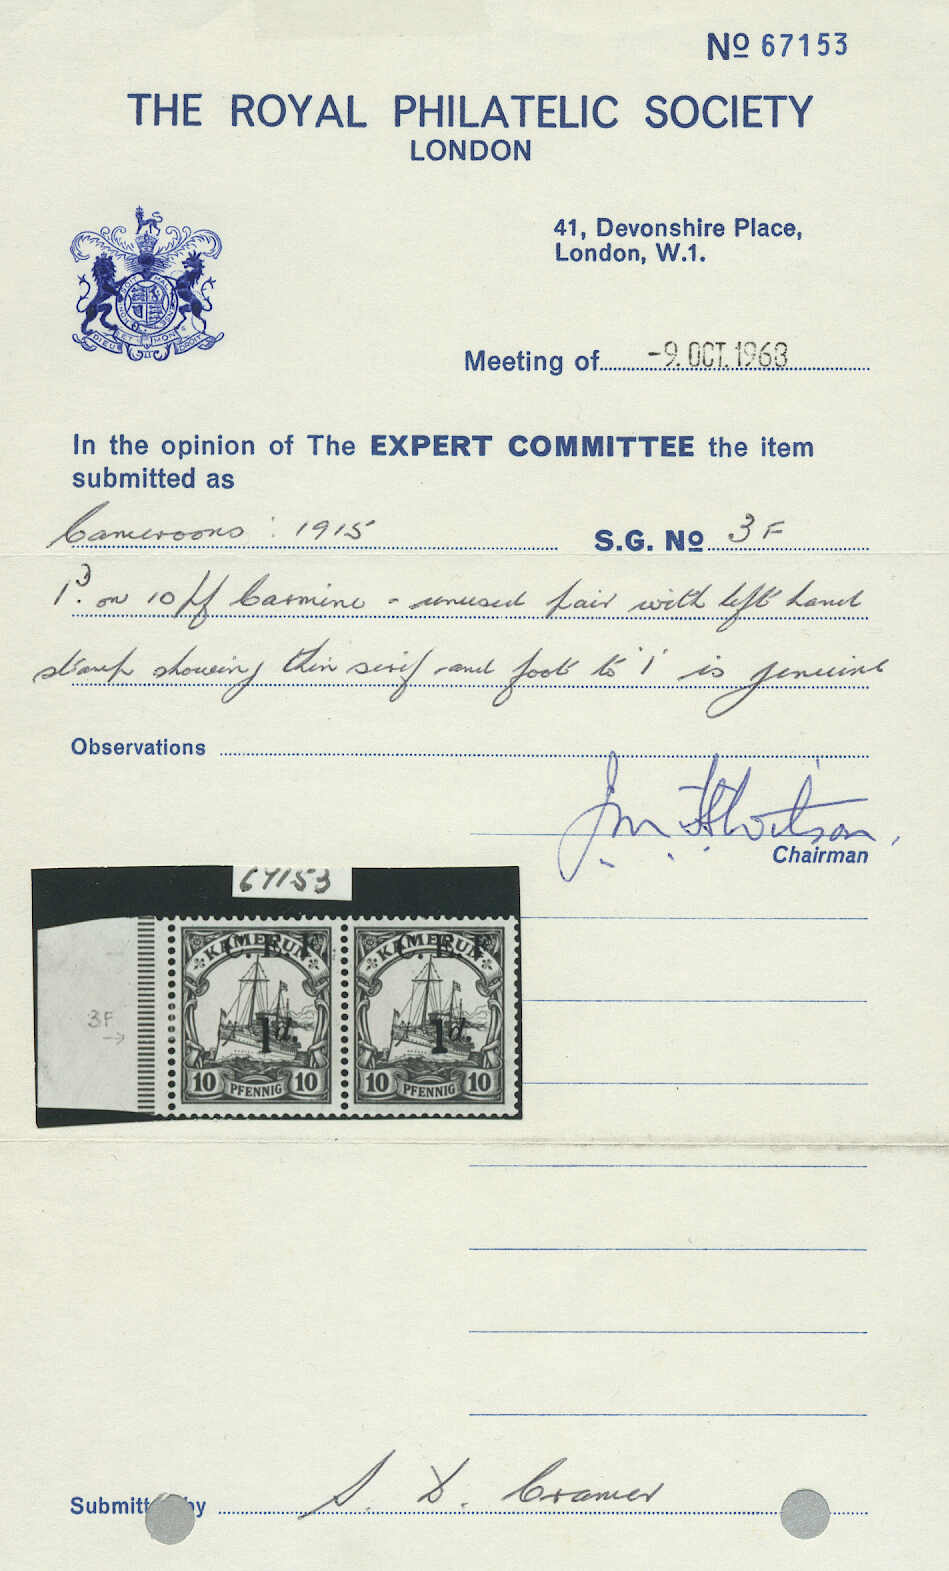 Nº 67153
THE ROYAL PHILATELIC SOCIETY
LONDON
41, Devonshire Place,
London, W.1.
DIEU ET MON DROIT
Meeting of -9. OCT. 1968
In the opinion of The EXPERT COMMITTEE the item
submitted as
Cameroons : 1915 S.G. Nº 3F
1D. on 10 pf Carmine - unused pair with left hand
stamp showing thin serif and foot to '1' is genuine
Observations
Chairman
67153
KAMERUN KAMERUN
C.E.F. C.E.F
3F
1d. 1d.
10 PFENNIG 10 10 PFENNIG 10
Submitted by S. D. Cramer